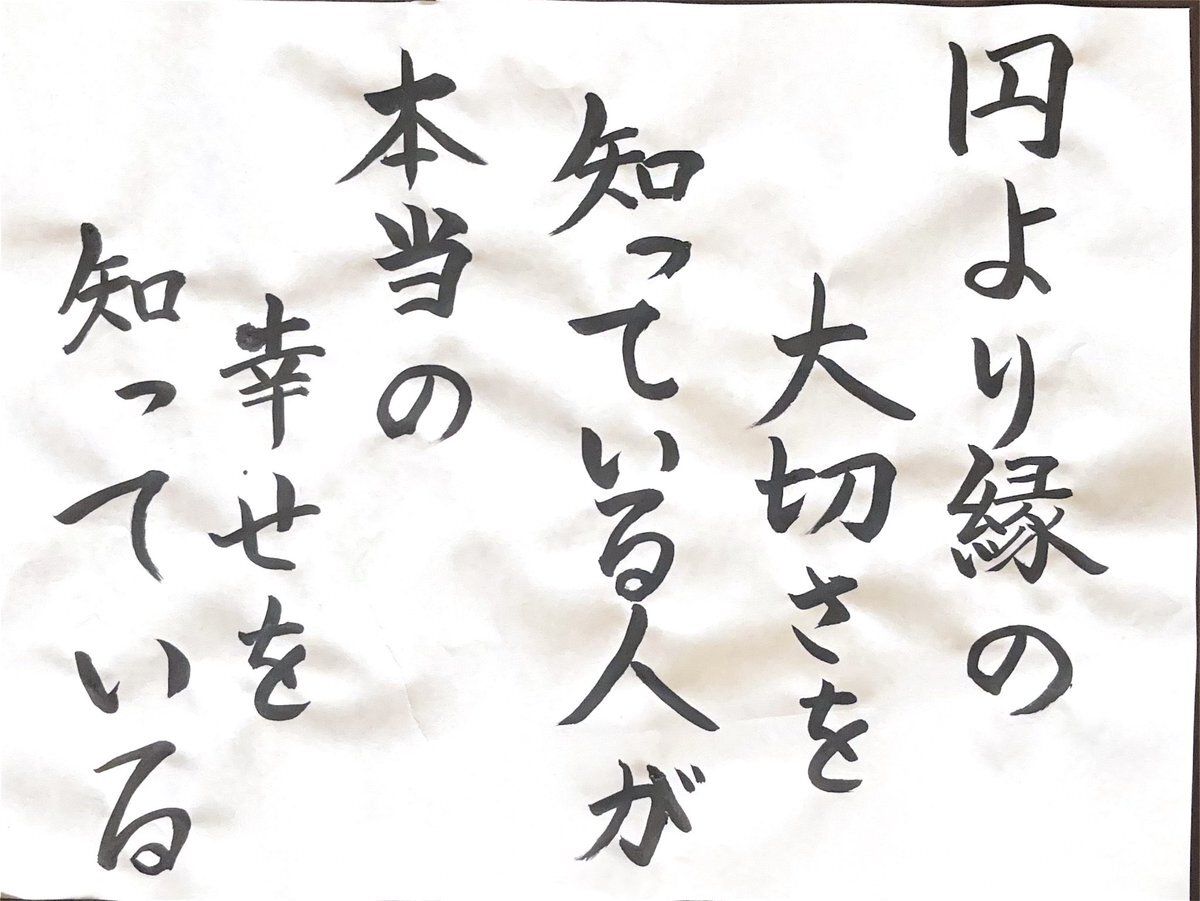 円より縁の
大切さを
知っている人が
本当の
幸せを
知っている